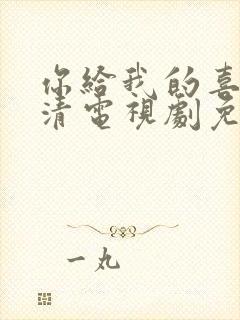 你給我的喜
清電視劇免
一丸